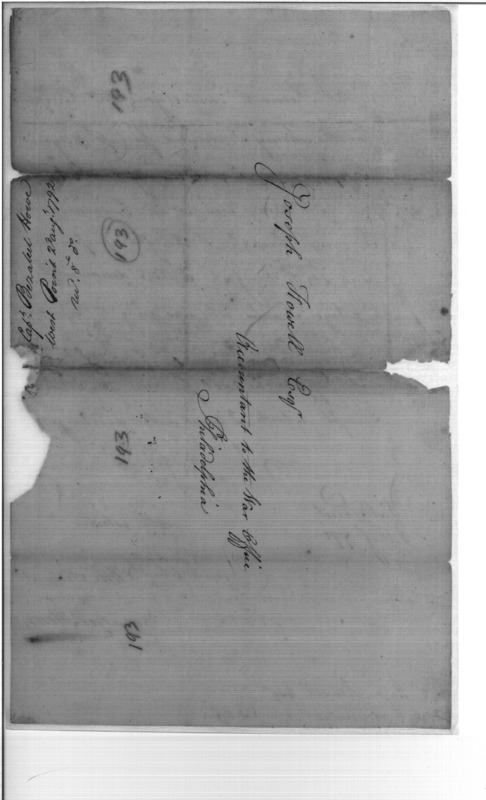 193
Joseph Howell Esqr
Accountant to the War Office
Philadelphia
Capt. Bezaleel Howe
West Point 2 Augt 1792
recd. 8th do.
193
193
193